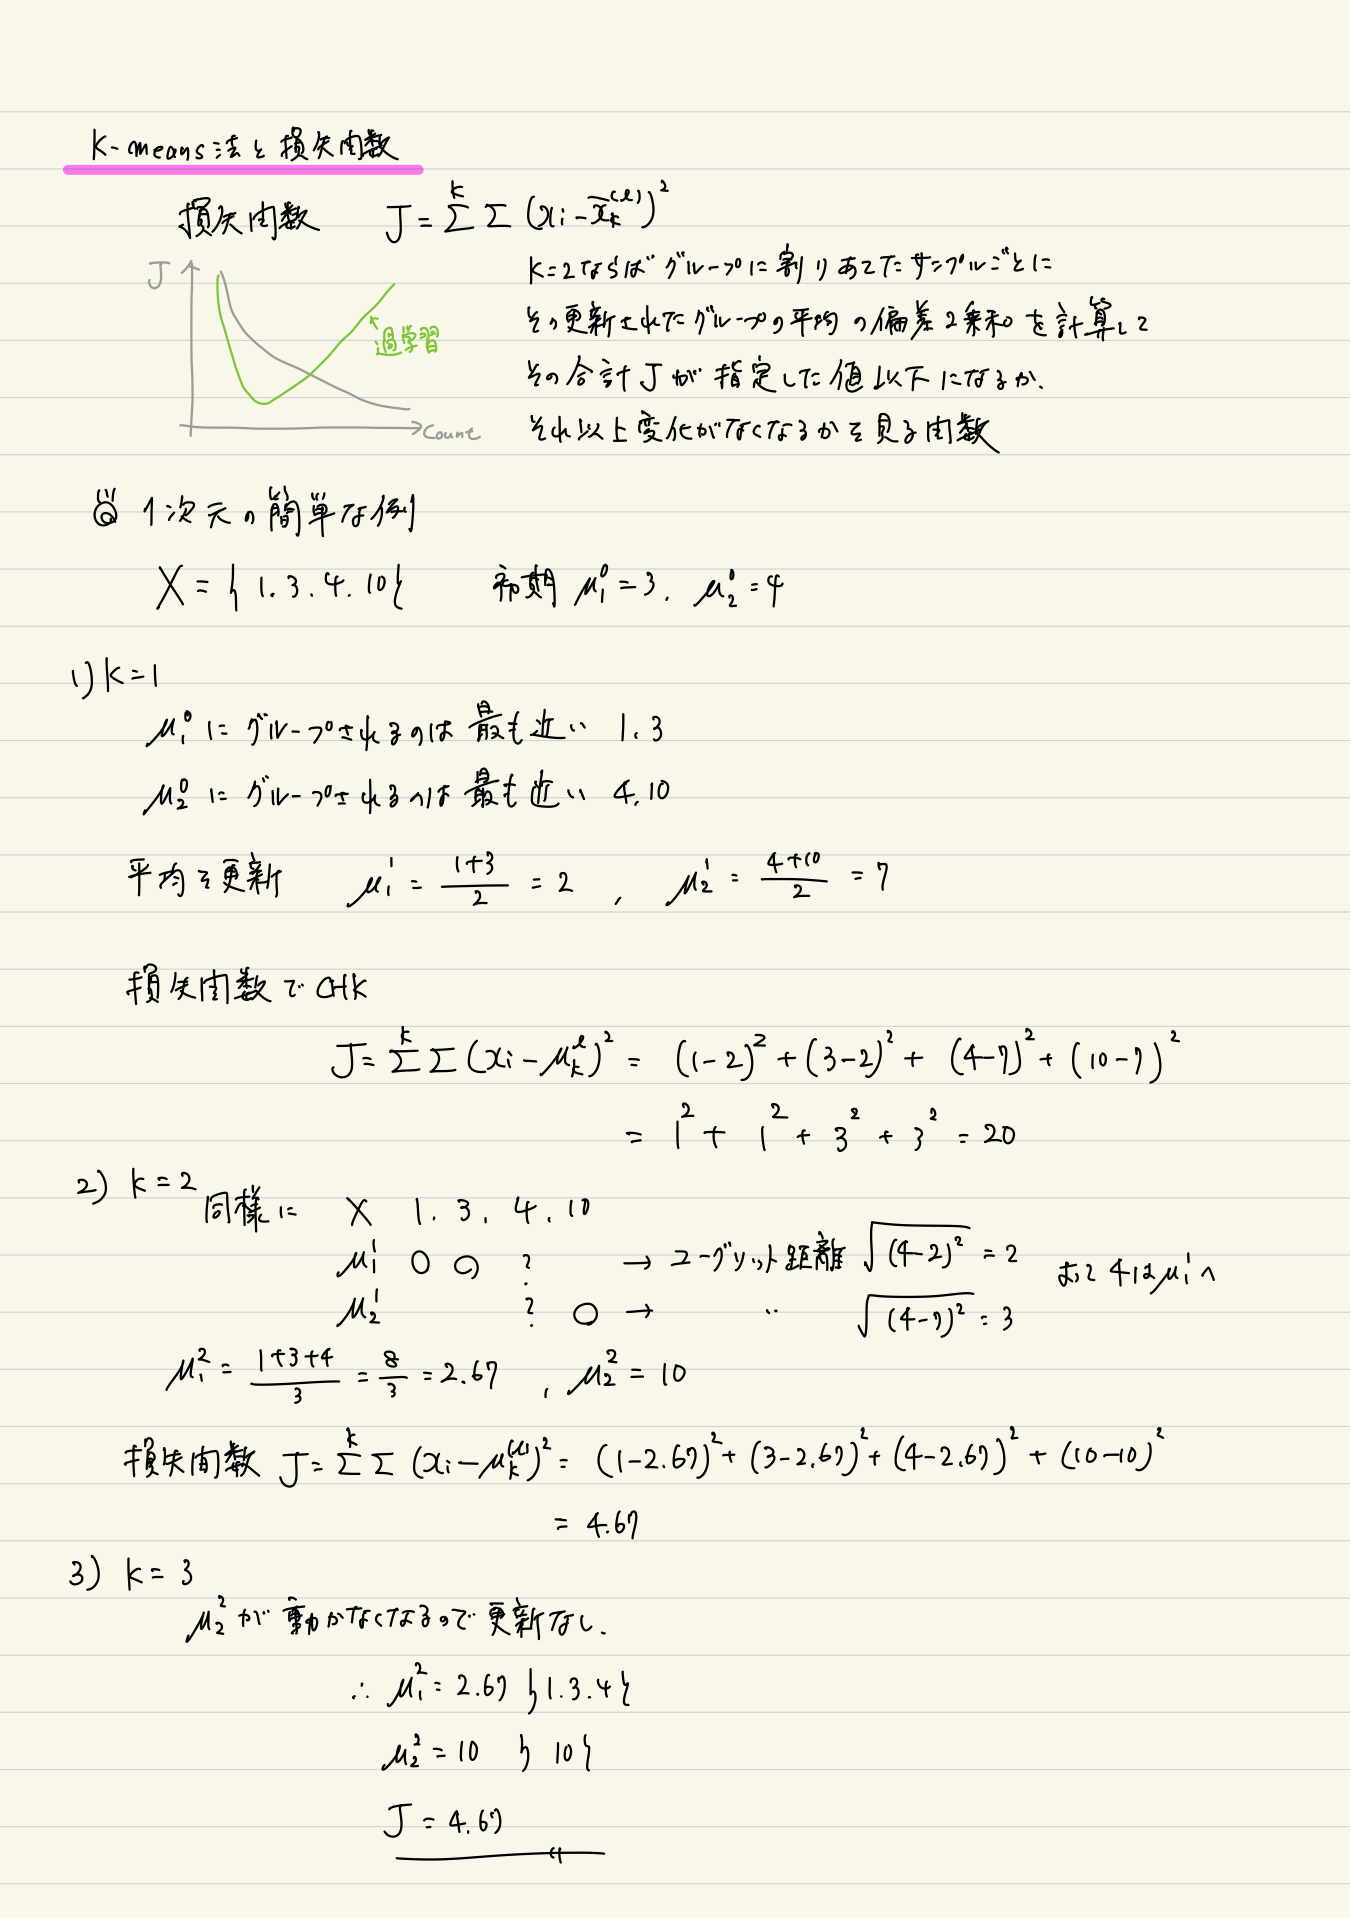 K-means法と損失関数
損失関数 J = Σ^k Σ (xi - x̄k^(l))^2
J
過学習
Count
K=2ならばグループに割りあてたサンプルごとに
その更新されたグループの平均の偏差2乗和を計算して
その合計Jが指定した値以下になるか、
それ以上変化がなくなるかを見る関数
1次元の簡単な例
X = { 1. 3. 4. 10 } 初期 μ₁⁰ = 3. μ₂⁰ = 4
1) k=1
μ₁⁰ に グループされるのは 最も近い 1. 3
μ₂⁰ に グループされるのは 最も近い 4. 10
平均を更新 μ₁¹ = (1+3)/2 = 2 , μ₂¹ = (4+10)/2 = 7
損失関数でCHK
J = Σ^k Σ (xi - μk^l)^2 = (1-2)^2 + (3-2)^2 + (4-7)^2 + (10-7)^2
= 1^2 + 1^2 + 3^2 + 3^2 = 20
2) k=2
同様に X 1. 3. 4. 10
μ₁¹ ○ ○ ? → ユーグリット距離 √(4-2)^2 = 2 よって 4は μ₁¹ へ
μ₂¹ ? ○ → 〃 √(4-7)^2 = 3
μ₁² = (1+3+4)/3 = 8/3 = 2.67 , μ₂² = 10
損失関数 J = Σ^k Σ (xi - μk^(l))^2 = (1-2.67)^2 + (3-2.67)^2 + (4-2.67)^2 + (10-10)^2
= 4.67
3) k = 3
μ₂² が動かなくなるので更新なし.
∴ μ₁² = 2.67 { 1. 3. 4 }
μ₂² = 10 { 10 }
J = 4.67